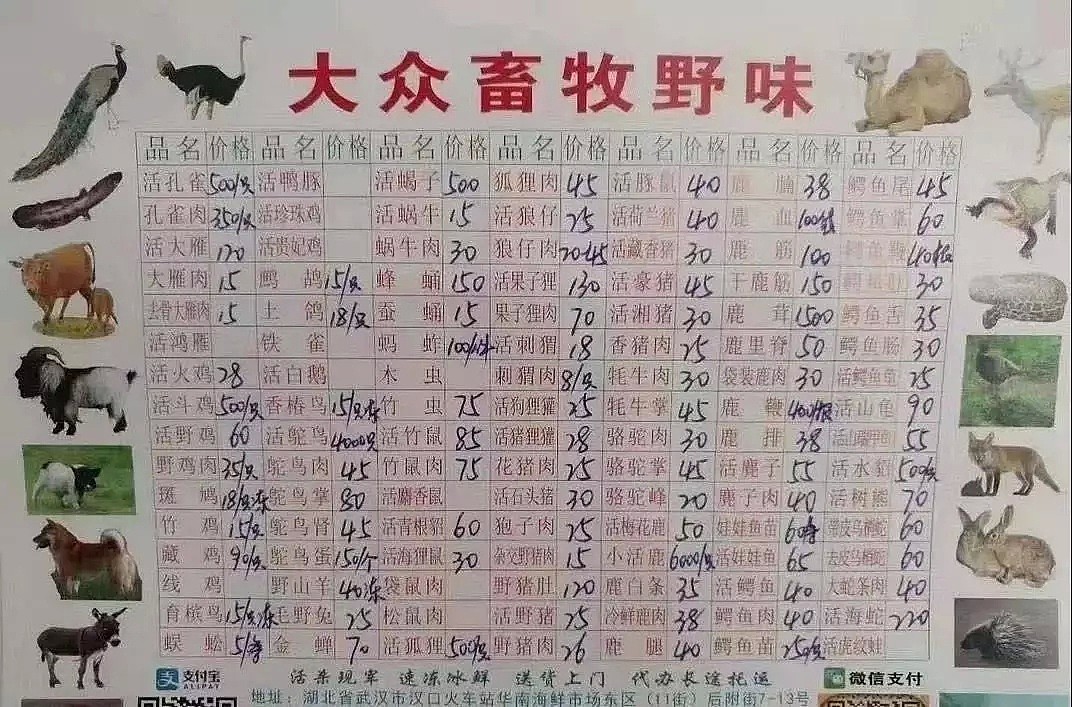 大众畜牧野味
品名 价格 品名 价格 品名 价格 品名 价格 品名 价格 品名 价格 品名 价格
活孔雀 500/只 活鸭豚 活蝎子 500 狐狸肉 45 活豚鼠 40 鹿腩 38 鳄鱼尾 45
孔雀肉 350/只 活珍珠鸡 活蜗牛 15 活狼仔 25 活荷兰猪 40 鹿血 鳄鱼掌 60
活大雁 120 活贵妃鸡 蜗牛肉 30 狼仔肉 活藏香猪 30 鹿筋 100 鳄鱼鞭
大雁肉 15 鹧鸪 15/只 蜂蛹 150 活果子狸 130 活豪猪 45 干鹿筋 150 30
去骨大雁肉 15 土鸽 18/只 蚕蛹 15 果子狸肉 70 活湘猪 30 鹿茸 1500 鳄鱼舌 35
活鸿雁 铁雀 蚂蚱 活刺猬 18 香猪肉 25 鹿里脊 50 鳄鱼肠 30
活火鸡 28 活白鹅 木虫 刺猬肉 8/只 牦牛肉 30 袋装鹿肉 30 活鳄鱼龟 25
活斗鸡 500/只 香椿鸟 15/只冻 竹虫 75 活狗狸獾 25 牦牛掌 45 鹿鞭 活山龟 90
活野鸡 60 活鸵鸟 4000只 活竹鼠 85 活猪狸獾 28 骆驼肉 30 鹿排 38 55
野鸡肉 35/只 鸵鸟肉 45 竹鼠肉 75 花猪肉 25 骆驼掌 45 活麂子 55 活水貂 500/只
斑鸠 18/只冻 鸵鸟掌 80 活麝香鼠 活石头猪 30 骆驼峰 20 麂子肉 40 活树熊 70
竹鸡 15/只 鸵鸟肾 45 活青根貂 60 狍子肉 25 活梅花鹿 50 娃娃鱼苗 带皮乌梢蛇 60
藏鸡 90/只 鸵鸟蛋 150/个 活海狸鼠 30 杂交野猪肉 15 小活鹿 6000/只 活娃娃鱼 65 去皮乌梢蛇 60
线鸡 野山羊 40冻 袋鼠肉 野猪肚 120 鹿白条 35 活鳄鱼 40 大蛇条肉 40
育槟鸟 15/只冻 毛野兔 25 松鼠肉 活野猪 25 冷鲜鹿肉 38 鳄鱼肉 40 活海蛇 220
蜈蚣 金蝉 70 活狐狸 500/只 野猪肉 26 鹿腿 40 鳄鱼苗 250/只 活虎纹蛙
支付宝 ALIPAY 活杀现宰 速冻冰鲜 送货上门 代办长途托运 微信支付
地址：湖北省武汉市汉口火车站华南海鲜市场东区（11街）后附街7-13号